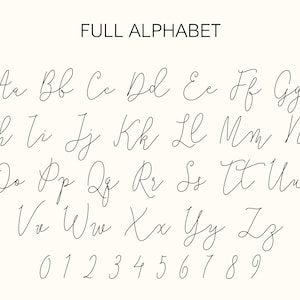 FULL ALPHABET
Aa Bb Cc Dd Ee Ff Gg
h Ii Jj Kk Ll Mm N
Oo Pp Qq Rr Ss Tt Uu
Vv Ww Xx Yy Zz
0 1 2 3 4 5 6 7 8 9